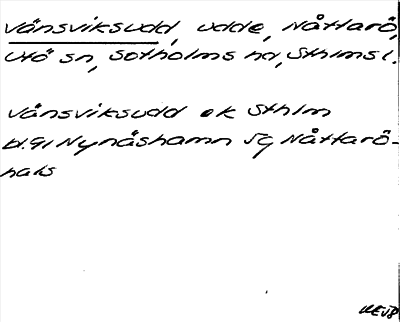 Vånsviksudd, udde, Nåttarö,
Utö sn, Sotholms hd, Sthlms l.
Vånsviksudd ek Sthlm
bl. 91 Nynäshamn 5g Nåttarö-
hals